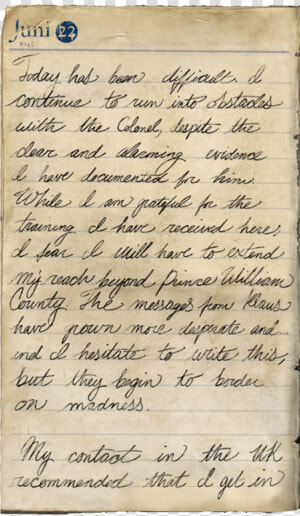 Juni 22
Today has been difficult. I
continue to run into obstacles
with the Colonel, despite the
clear and alarming evidence
I have documented for him.
While I am grateful for the
training I have received here,
I fear I will have to extend
my reach beyond Prince William
County. The messages from Klaus
have grown more desperate and...
and I hesitate to write this,
but they begin to border
on madness.
My contact in the UK
recommended that I get in